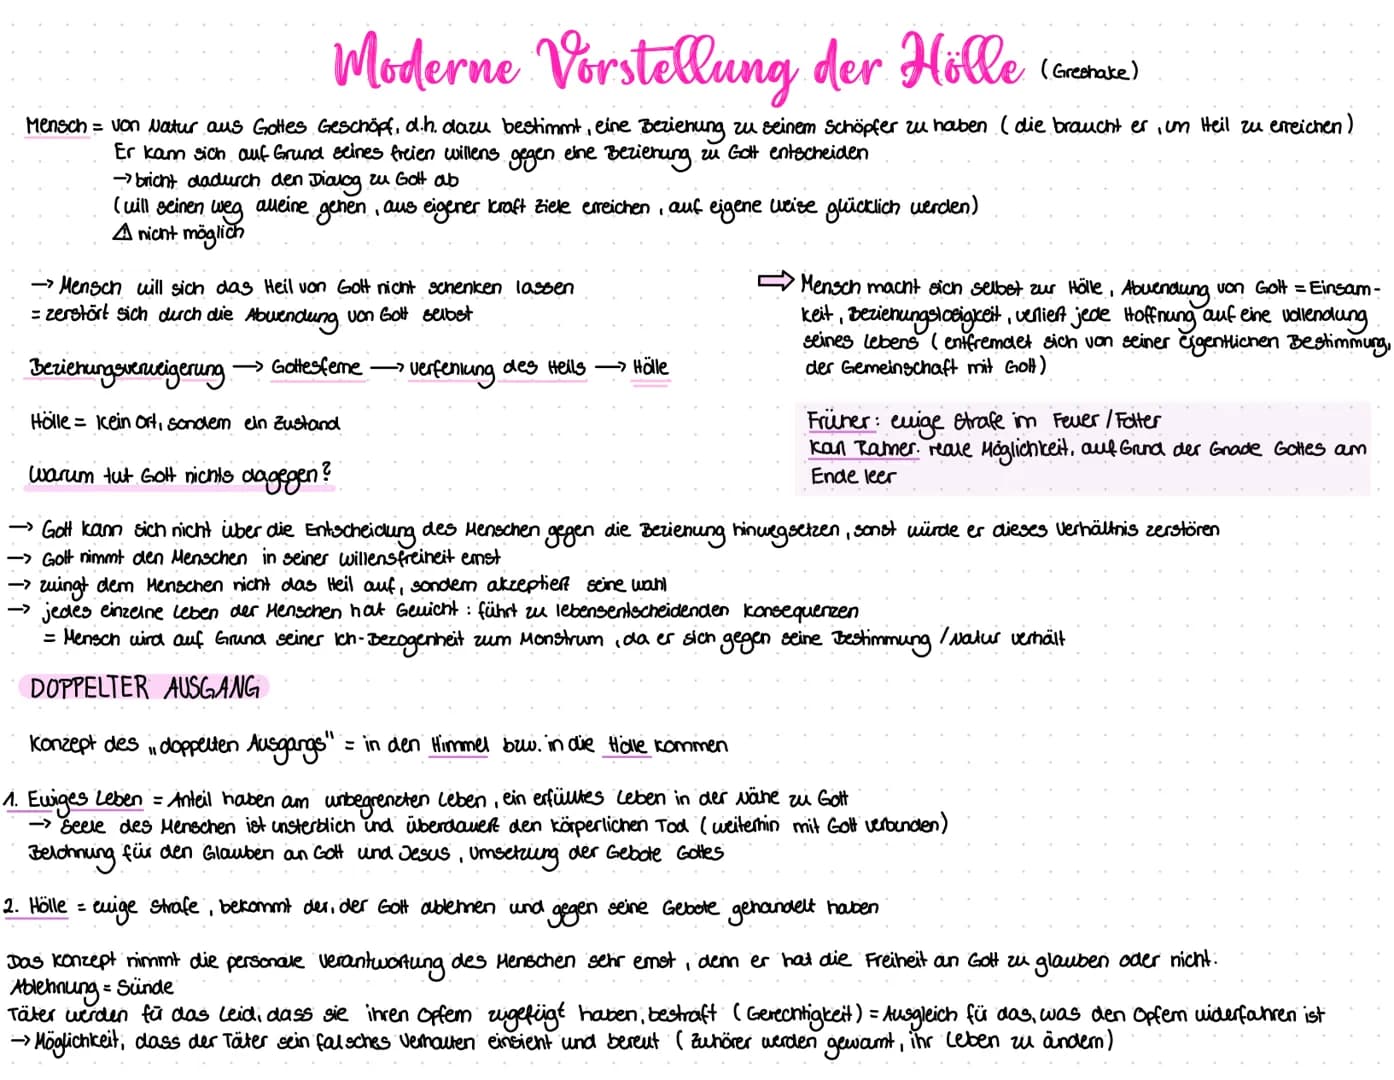 Moderne Vorstellung der Hölle (Greshake)
Mensch = von Natur aus Gottes Geschöpf, d.h. dazu bestimmt, eine Beziehung zu seinem Schöpfer zu haben (die braucht er, um Heil zu erreichen)
Er kann sich auf Grund seines freien willens gegen eine Beziehung zu Gott entscheiden
→ bricht dadurch den Dialog zu Gott ab
(will seinen weg alleine gehen, aus eigener kraft Ziele erreichen, auf eigene weise glücklich werden)
⚠ nicht möglich
→ Mensch will sich das Heil von Gott nicht schenken lassen
= zerstört sich durch die Abwendung von Gott selbst
Beziehungsverweigerung → Gottesferne → verfehlung des Heils → Hölle
Hölle = kein Ort, sondern ein Zustand
Warum tut Gott nichts dagegen?
⇒ Mensch macht sich selbst zur Hölle, Abwendung von Gott = Einsam-
keit, Beziehungslosigkeit, verliert jede Hoffnung auf eine vollendung
seines Lebens (entfremdet sich von seiner eigentlichen Bestimmung,
der Gemeinschaft mit Gott)
Früher: ewige Strafe im Feuer / Folter
Karl Rahner: reale Möglichkeit, auf Grund der Gnade Gottes am
Ende leer
→ Gott kann sich nicht über die Entscheidung des Menschen gegen die Beziehung hinwegsetzen, sonst würde er dieses Verhältnis zerstören
→ Gott nimmt den Menschen in seiner willensfreiheit ernst
→ zwingt dem Menschen nicht das Heil auf, sondern akzeptiert seine wahl
→ jedes einzelne Leben der Menschen hat Gewicht: führt zu lebensentscheidenden Konsequenzen
= Mensch wird auf Grund seiner Ich-Bezogenheit zum Monstrum, da er sich gegen seine Bestimmung / Natur verhält
DOPPELTER AUSGANG
Konzept des „doppelten Ausgangs" = in den Himmel bzw. in die Hölle kommen
1. Ewiges Leben = Anteil haben am unbegrenzten Leben, ein erfülltes Leben in der Nähe zu Gott
→ Seele des Menschen ist unsterblich und überdauert den körperlichen Tod (weiterhin mit Gott verbunden)
Belohnung für den Glauben an Gott und Jesus, Umsetzung der Gebote Gottes
2. Hölle = ewige Strafe, bekommt der, der Gott ablehnen und gegen seine Gebote gehandelt haben
Das Konzept nimmt die personale Verantwortung des Menschen sehr ernst, denn er hat die Freiheit an Gott zu glauben oder nicht.
Ablehnung = Sünde
Täter werden für das Leid, dass sie ihren Opfern zugefügt haben, bestraft (Gerechtigkeit) = Ausgleich für das, was den Opfern widerfahren ist
→ Möglichkeit, dass der Täter sein falsches Verhalten einsieht und bereut (Zuhörer werden gewarnt, ihr Leben zu ändern)